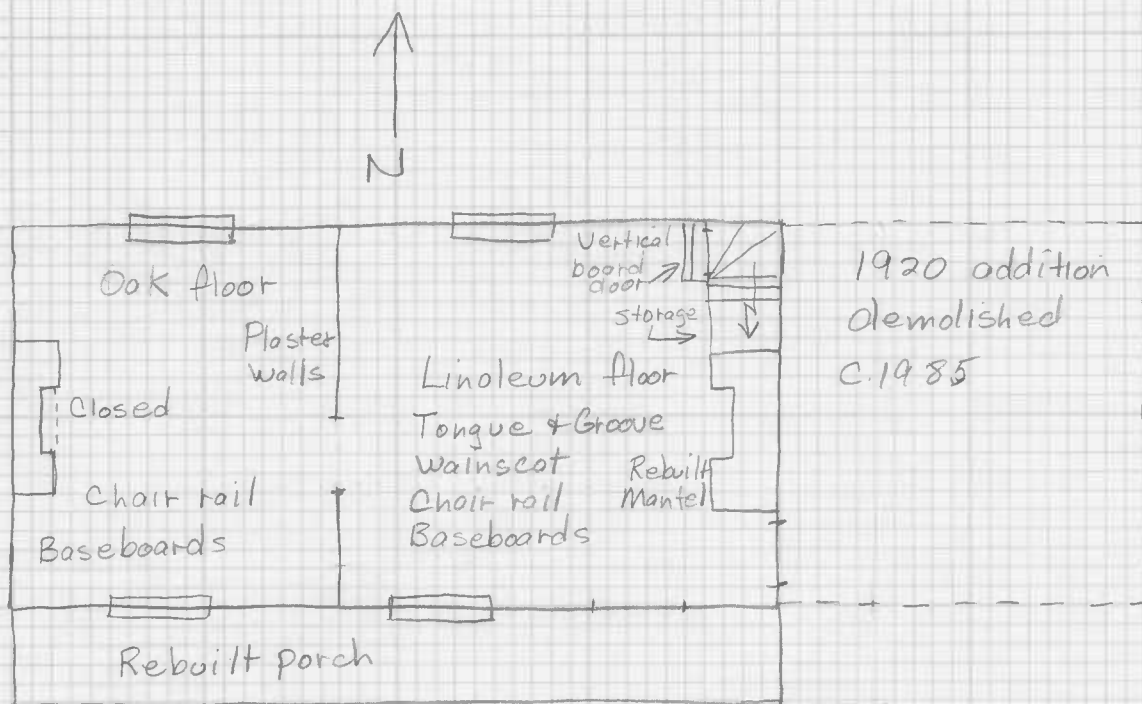 N
Oak floor
Plaster
walls
Closed
Chair rail
Baseboards
Vertical
board
door
storage
Linoleum floor
Tongue & Groove
Wainscot
Chair rail
Baseboards
Rebuilt
Mantel
1920 addition
demolished
C.1985
Rebuilt porch